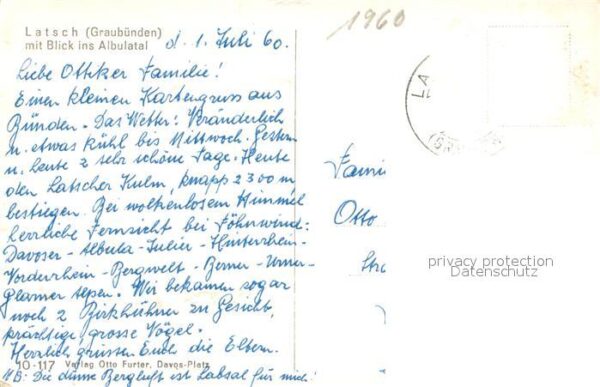 Latsch (Graubünden)
mit Blick ins Albulatal
d. 1. Juli 60.
1960
Liebe Ottiker Familie!
Einen kleinen Kartengruss aus
Bünden. Das Wetter: Veränderlich
u. etwas kühl bis Mittwoch. Gestern
u. heute 2 sehr schöne Tage. Heute
den Latscher Kulm, knapp 2300 m
bestiegen. Bei wolkenlosem Himmel
herrliche Fernsicht bei Föhnwind:
Davoser - Albula - Julier - Hinterrhein-
Vorderrhein - Bergwelt - Berner - Urner-
Glarner Alpen. Wir bekamen sogar
noch 2 Birkhühner zu Gesicht,
prächtige, grosse Vögel.
Herzlich grüssen Euch die Eltern.
10-117 Verlag Otto Furter, Davos-Platz
NB: Die dünne Bergluft ist Labsal für mich!
LA
Fami
Otto
Stra
privacy protection
Datenschutz